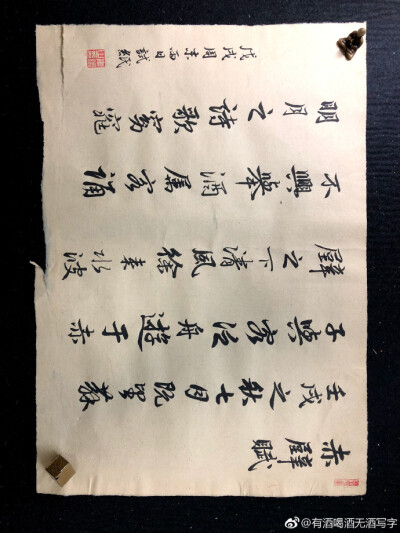 赤壁賦
壬戌之秋七月既望蘇
子與客泛舟遊于赤
壁之下清風徐來水波
不興舉酒屬客誦
明月之詩歌窈窕
戊戌周末雨日試紙
@有酒喝酒无酒写字